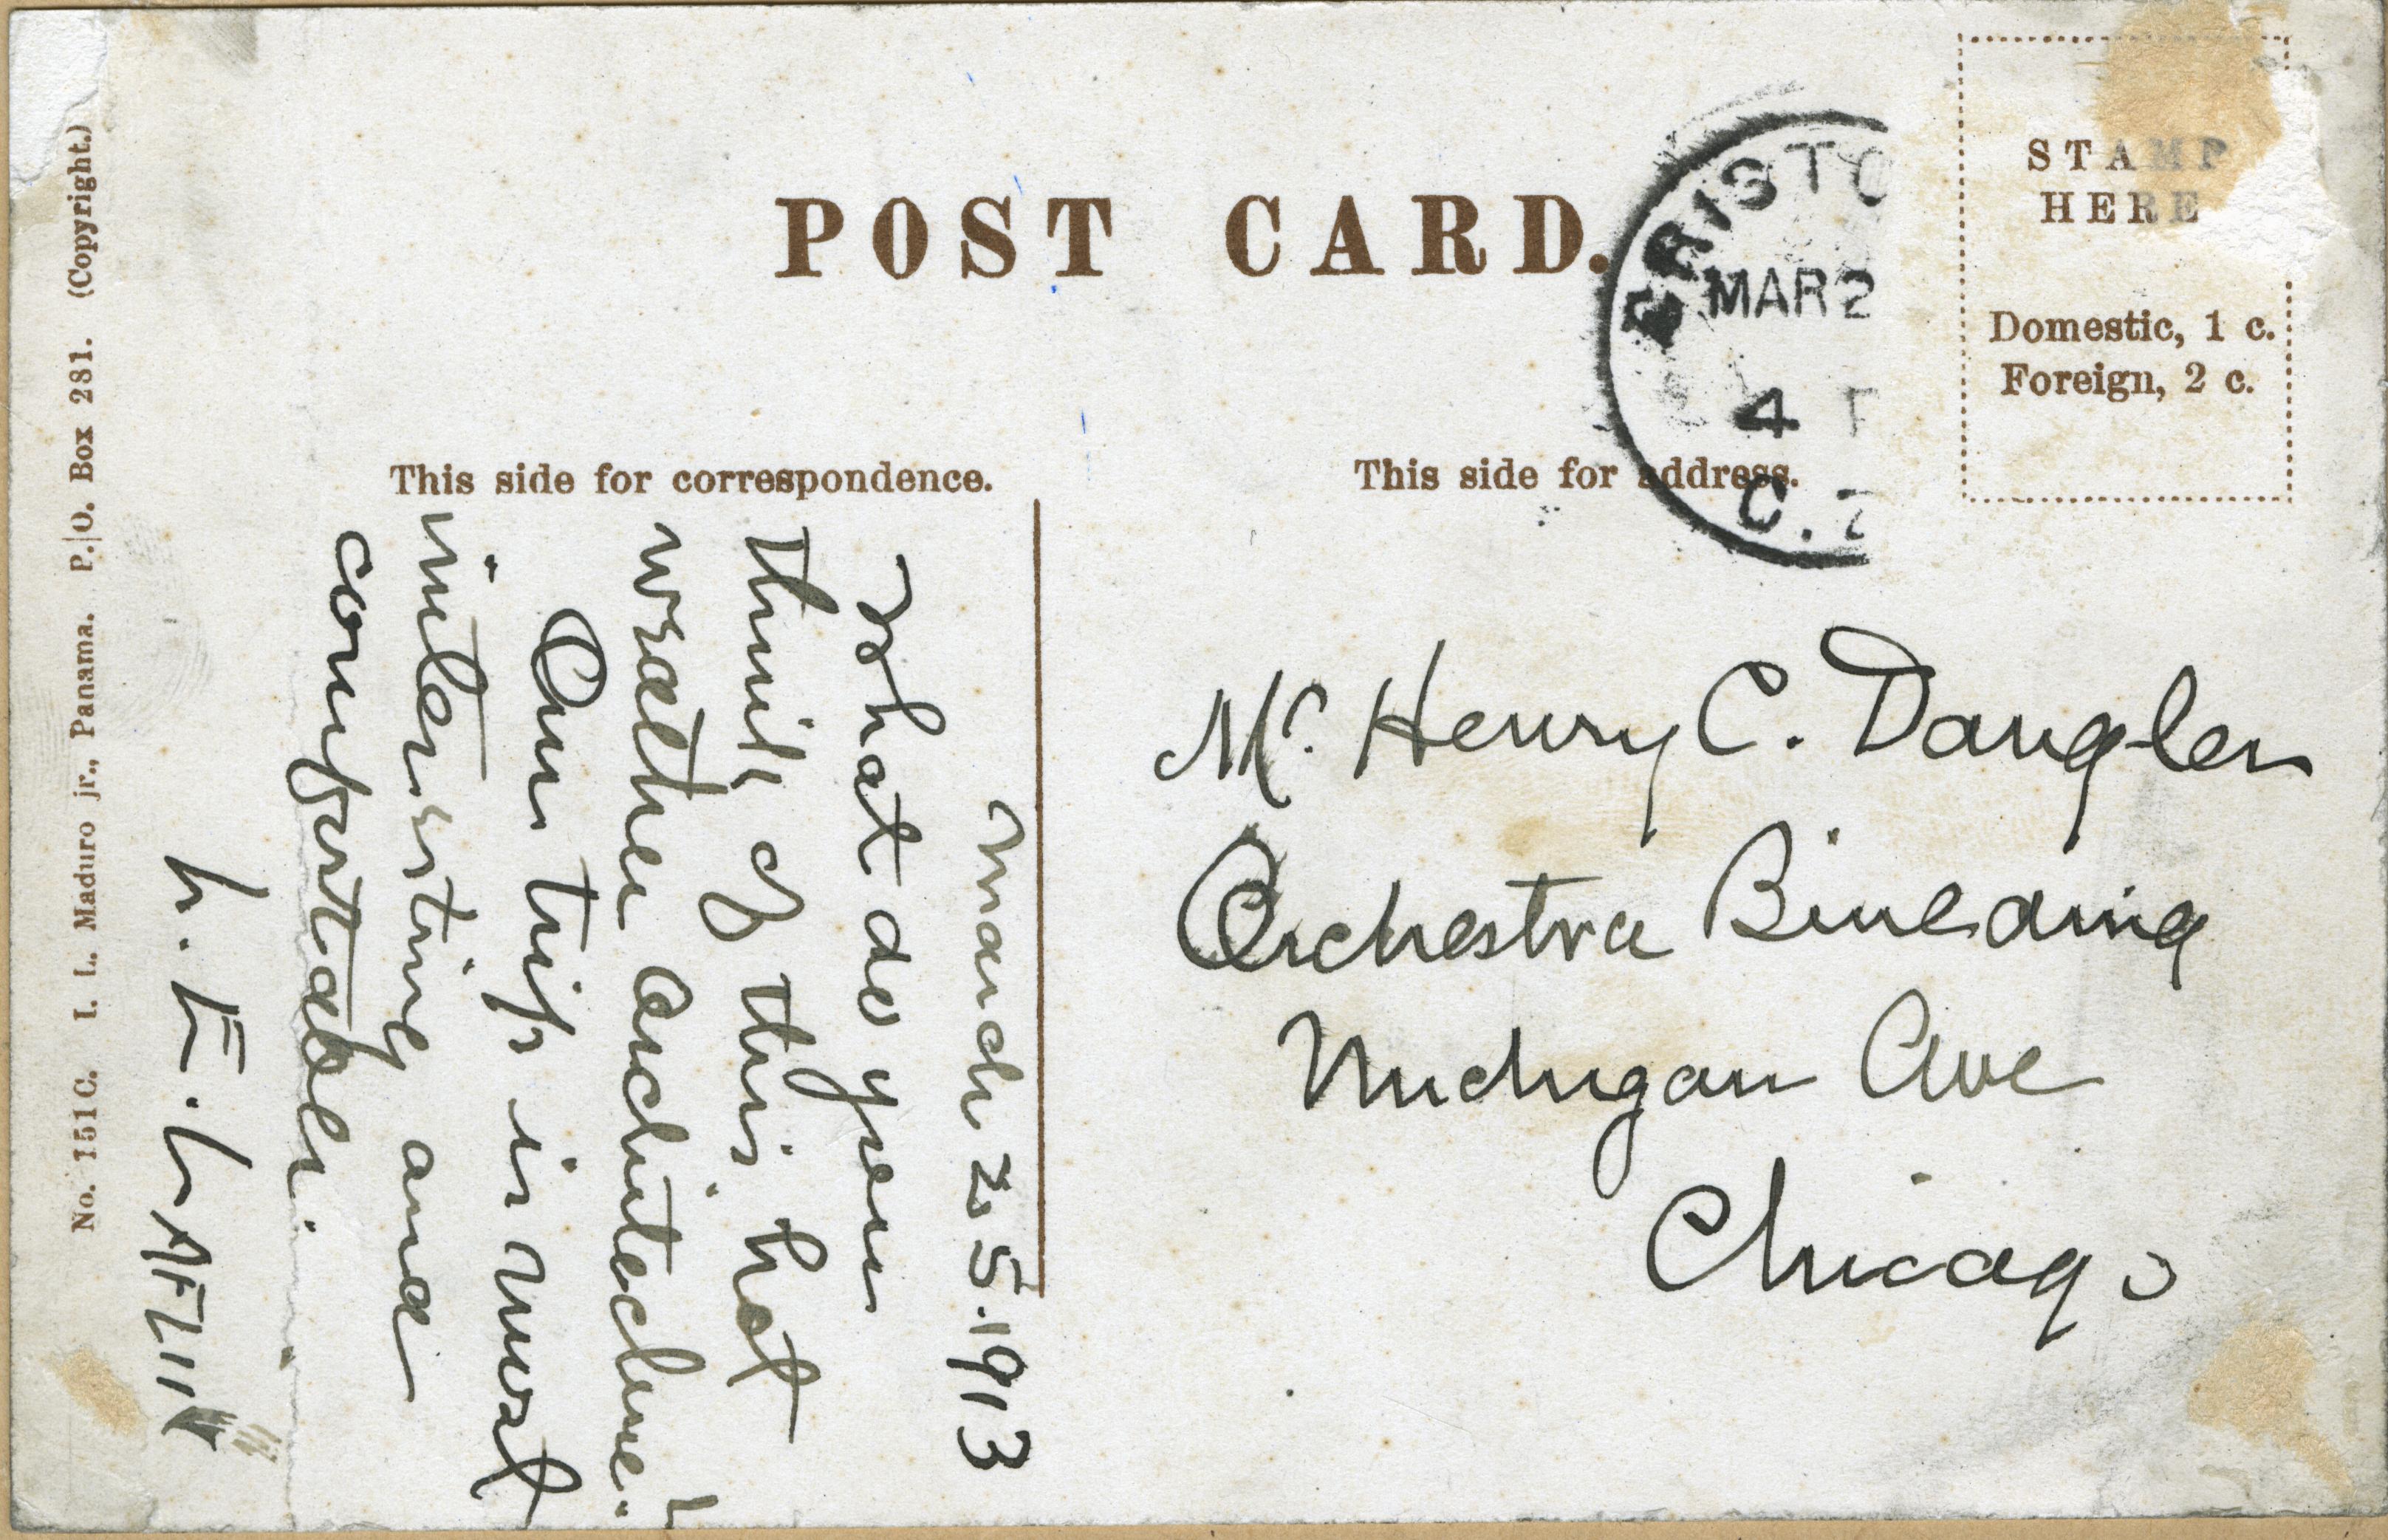 POST CARD.
STAMP
HERE
Domestic, 1 c.
Foreign, 2 c.
CRISTO
MAR 2
4 P
C.Z
This side for correspondence.
This side for address.
March 25. 1913
What do you
think of this hot
weather architecture?
Our trip is most
interesting and
comfortable.
Mr. Henry C. Dangler
Orchestra Building
Michigan Ave
Chicago
No. 151C. I. L. Maduro jr., Panama. P. O. Box 281. (Copyright.)